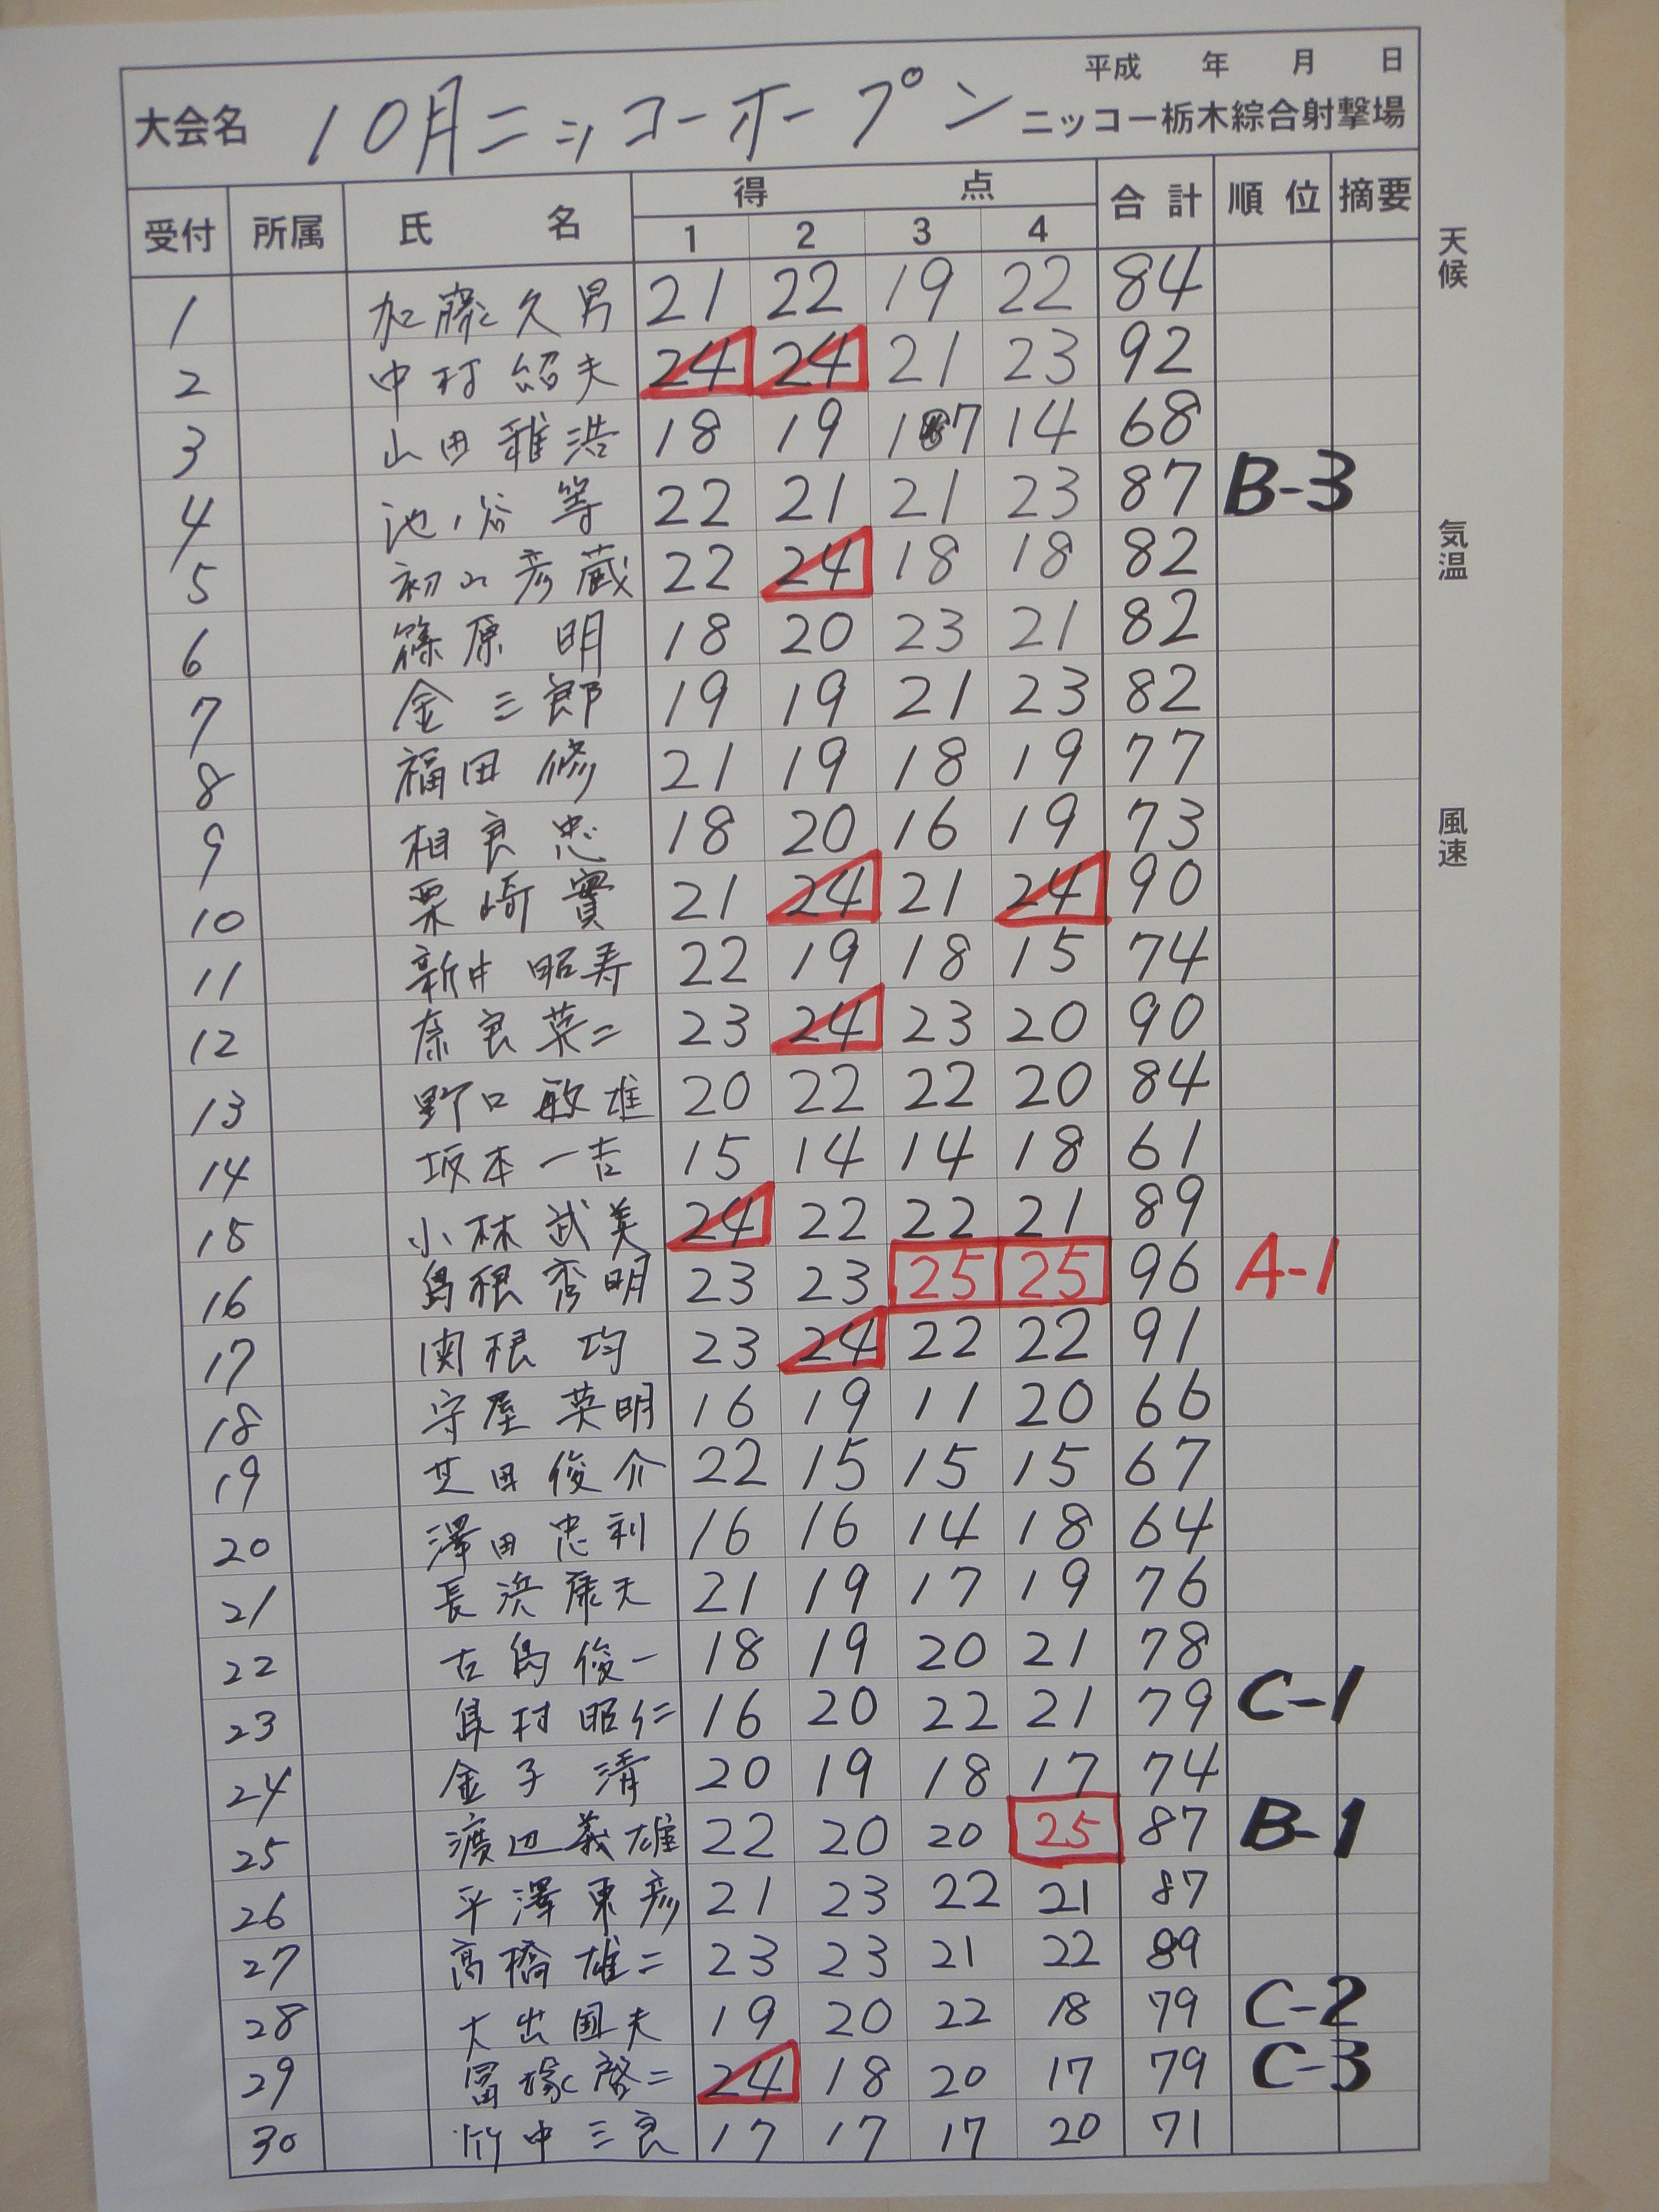 平成 年 月 日
大会名 10月ニッコーオープン ニッコー栃木綜合射撃場
受付 所属 氏名 得点 合計 順位 摘要
1 2 3 4
1 加藤久男 21 22 19 22 84
2 中村紹夫 24 24 21 23 92
3 山田雅浩 18 19 17 14 68
4 池ノ谷等 22 21 21 23 87 B-3
5 初山彦蔵 22 24 18 18 82
6 篠原明 18 20 23 21 82
7 金三郎 19 19 21 23 82
8 福田修 21 19 18 19 77
9 相良忠 18 20 16 19 73
10 栗崎實 21 24 21 24 90
11 新井昭寿 22 19 18 15 74
12 奈良英二 23 24 23 20 90
13 野口敏雄 20 22 22 20 84
14 坂本一吉 15 14 14 18 61
15 小林武美 24 22 22 21 89
16 島根秀明 23 23 25 25 96 A-1
17 関根均 23 24 22 22 91
18 守屋英明 16 19 11 20 66
19 芝田俊介 22 15 15 15 67
20 澤田忠利 16 16 14 18 64
21 長浜康夫 21 19 17 19 76
22 古島俊一 18 19 20 21 78
23 村昭仁 16 20 22 21 79 C-1
24 金子清 20 19 18 17 74
25 渡辺義雄 22 20 20 25 87 B-1
26 平澤東彦 21 23 22 21 87
27 高橋雄二 23 23 21 22 89
28 大出国夫 19 20 22 18 79 C-2
29 冨塚啓二 24 18 20 17 79 C-3
30 竹中三良 17 17 17 20 71
天候
気温
風速